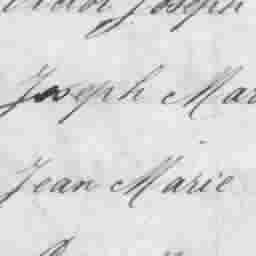 Joseph
Joseph Mar
Jean Marie